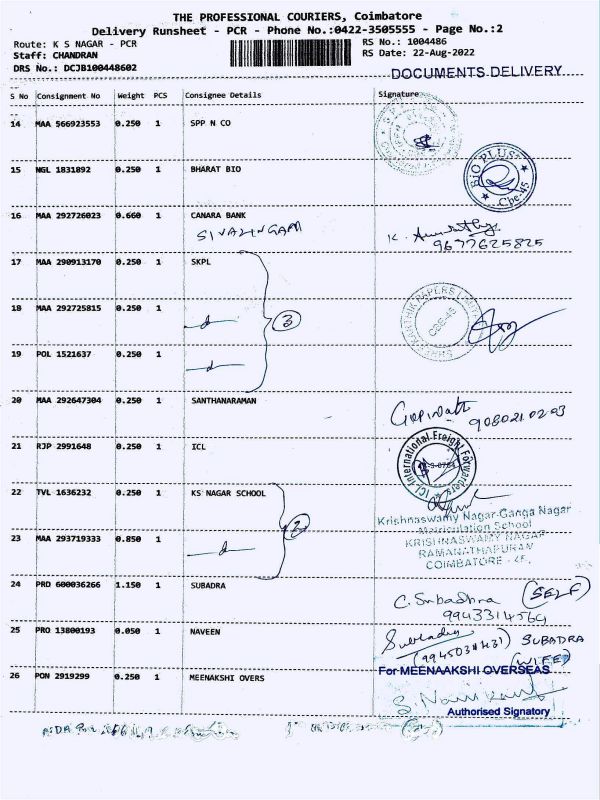 THE PROFESSIONAL COURIERS, Coimbatore
Delivery Runsheet - PCR - Phone No.:0422-3505555 - Page No.:2
Route: K S NAGAR - PCR
RS No.: 1004486
Staff: CHANDRAN
RS Date: 22-Aug-2022
DRS No.: DCJB100448602
DOCUMENTS DELIVERY
S No Consignment No Weight PCS Consignee Details Signature
14 MAA 566923553 0.250 1 SPP N CO
15 NGL 1831892 0.250 1 BHARAT BIO
BIO PLUS
Cbe-45
16 MAA 292726023 0.660 1 CANARA BANK
SIVALINGAM
K.
9677625825
17 MAA 290913170 0.250 1 SKPL
18 MAA 292725815 0.250 1
3
KARTHIK PAPERS LIMITED
CBE-45
19 POL 1521637 0.250 1
20 MAA 292647304 0.250 1 SANTHANARAMAN
Gopinath
9080210203
21 RJP 2991648 0.250 1 ICL
ICL International Freight Forwarders
22 TVL 1636232 0.250 1 KS NAGAR SCHOOL
2
Krishnaswamy Nagar-Ganga Nagar
Matriculation School
23 MAA 293719333 0.850 1
KRISHNASWAMY NAGAR
RAMANATHAPURAM
COIMBATORE - 45.
24 PRD 600036266 1.150 1 SUBADRA
C. Subadhra (SELF)
9943314564
25 PRO 13800193 0.050 1 NAVEEN
SUBADRA
(WIFE)
26 PON 2919299 0.250 1 MEENAKSHI OVERS
For MEENAAKSHI OVERSEAS
Authorised Signatory